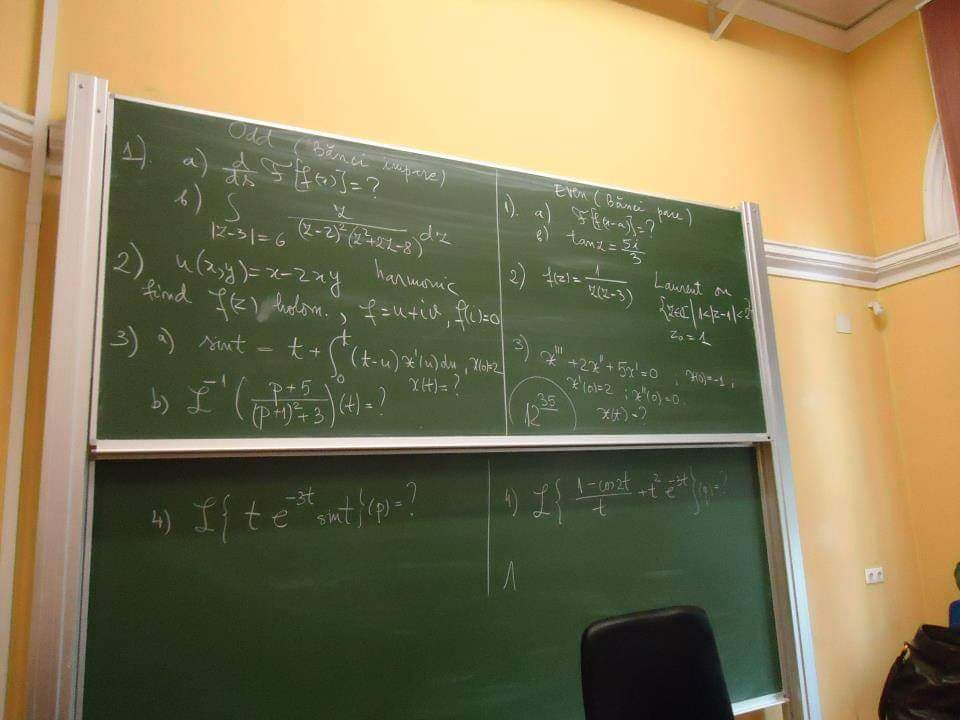 Odd (Bănci impare)
1). a) d/ds F[f(x)] = ?
b) ∫ z / ((z-2)²(z²+2z-8)) dz
|z-3|=6
2) u(x,y) = x - 2xy harmonic
find f(z) holom., f = u+iv, f(i)=0
3) a) sint = t + ∫₀ᵗ (t-u) x'(u) du, x(0)=2
x(t)=?
b) L⁻¹ ( (p+5) / ((p+1)²+3) ) (t) = ?
4) L{ t e^(-3t) sint}(p) = ?
Even (Bănci pare)
1). a) F[f(x-a)] = ?
b) tan z = 5i/3
2) f(z) = 1 / (z(z-3)) Laurent on
{z∈ℂ | 1<|z-1|<2}
z₀ = 1
3) x''' + 2x'' + 5x' = 0, x(0)=-1;
x'(0)=2; x''(0)=0.
x(t)=?
12³⁵
4) L{ (1-cos2t)/t + t² e^(-3t) }(p) = ?
1